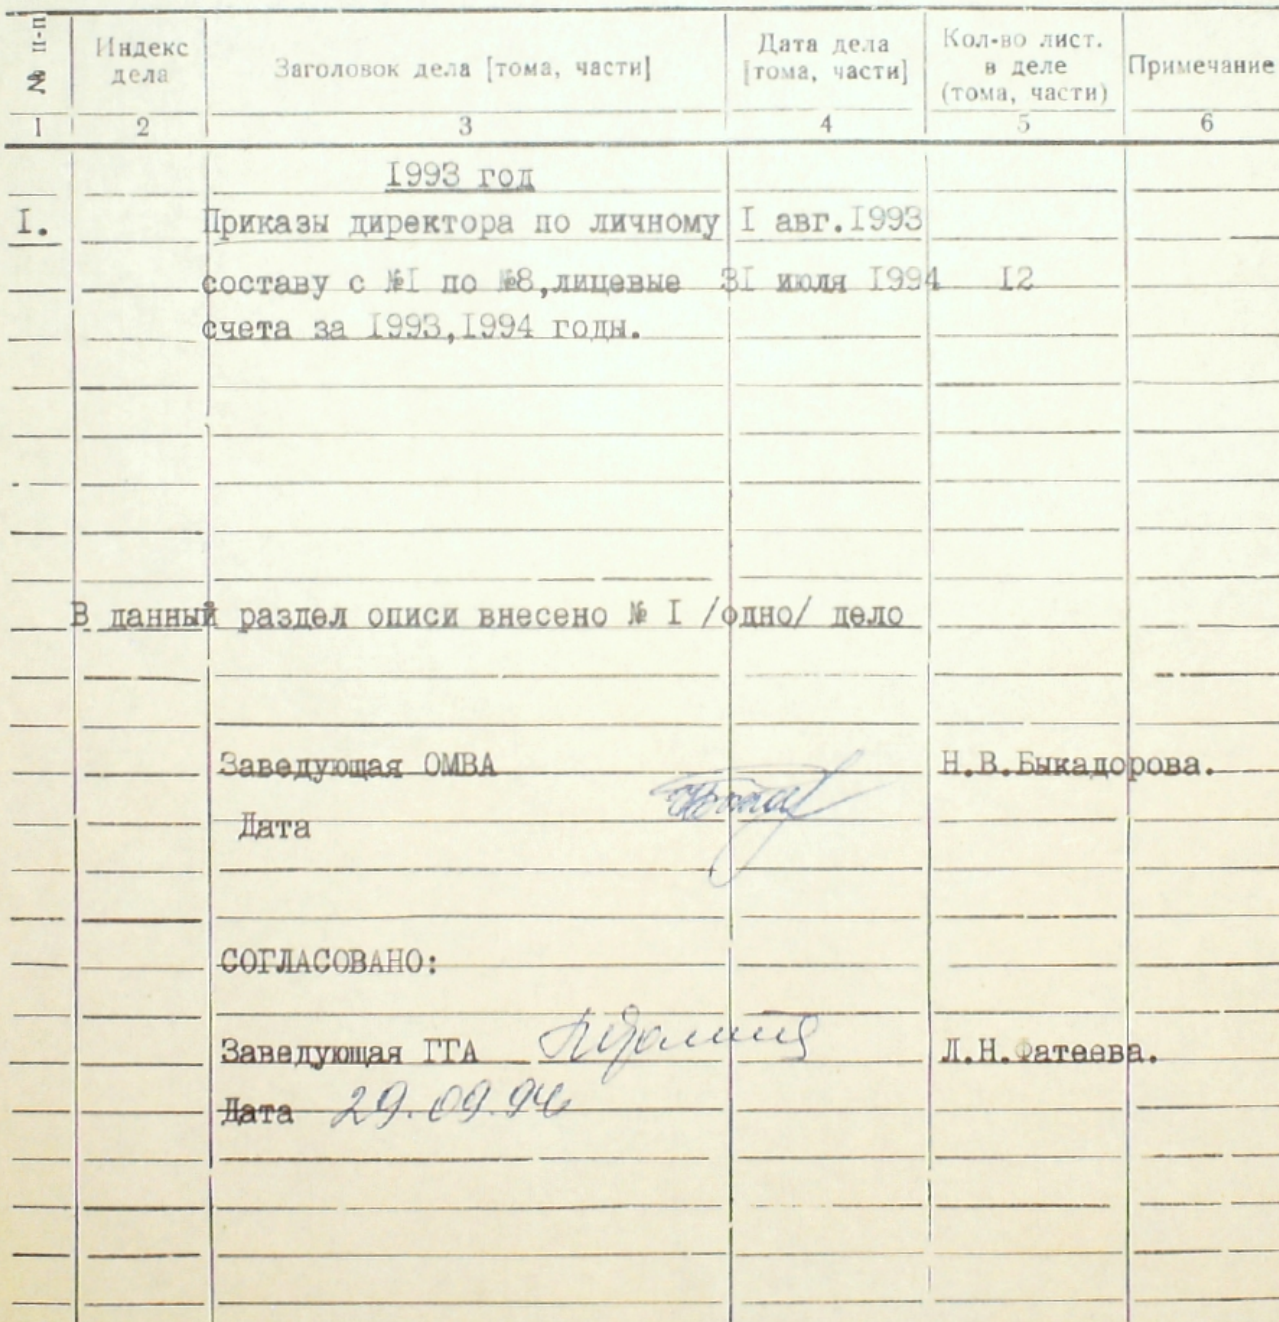 № п-п Индекс дела Заголовок дела [тома, части] Дата дела [тома, части] Кол-во лист. в деле (тома, части) Примечание
1 2 3 4 5 6
1993 год
I. Приказы директора по личному I авг.1993
составу с №I по №8,лицевые 31 июля 1994 12
счета за 1993,1994 годы.
В данный раздел описи внесено № I /одно/ дело
Заведующая ОМВА Н.В.Быкадорова.
Дата
СОГЛАСОВАНО:
Заведующая ГГА Л.Н.Фатеева.
Дата 29.09.94